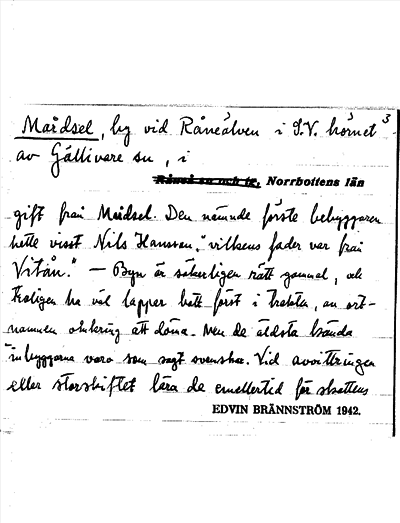 3
Mårdsel, by vid Råneälven i S.V. hörnet
av Gällivare sn, i
Råneå sn och tg, Norrbottens län
gift från Mårdsel. Den nämnde förste bebyggaren
hette visst Nils Hansson, "vilkens fader var från
Vitån." — Byn är säkerligen rätt gammal, och
troligen ha väl lapper bott först i trakten, av ort-
namnen omkring att döma. Men de äldsta kända
inbyggarna voro som sagt svenskar. Vid avvittringen
eller storskiftet lära de emellertid för skattens
EDVIN BRÄNNSTRÖM 1942.